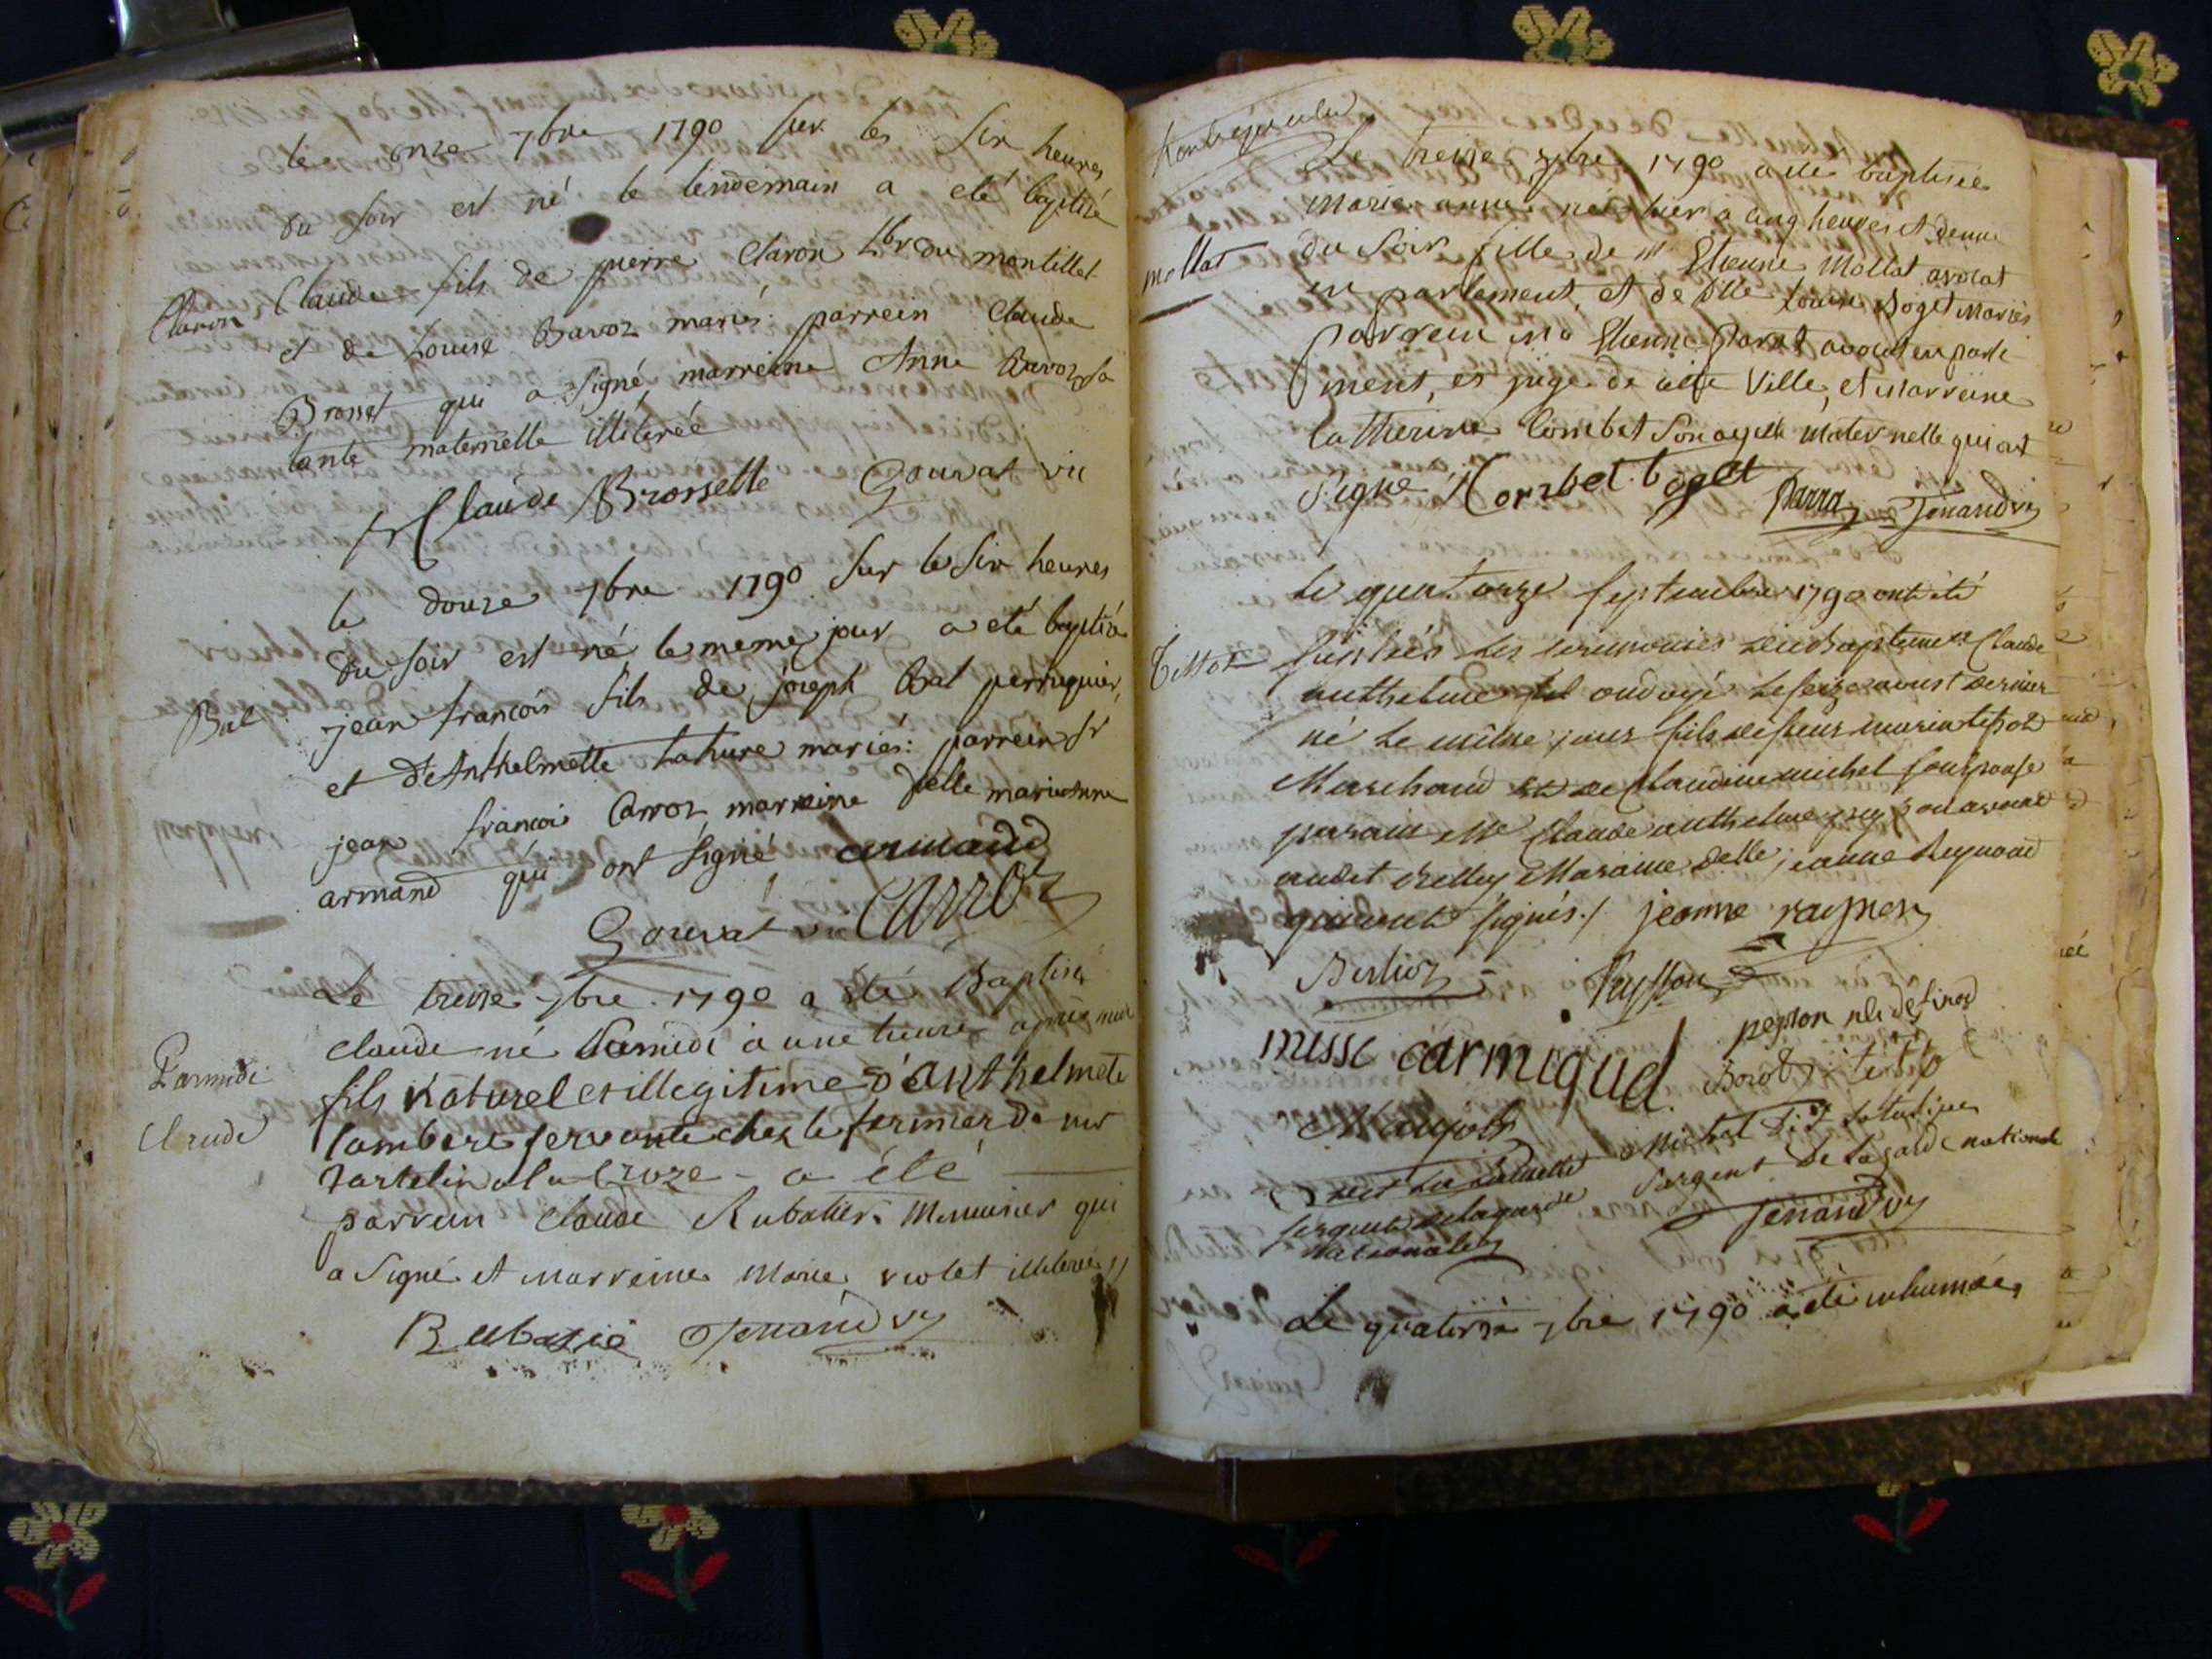 le onze 7bre 1790 sur les six heures
du soir est né le lendemain a eté baptisé
Claron
Claude fils de pierre Claron du montillet
et de Louise Bavoz mariés: parrein Claude
Brosset qui a signé marreine Anne Bavoz sa
tante maternelle illiterée
Claude Brossette Gouvat vic
le douze 7bre 1790 sur les six heures
du soir est né le meme jour a eté baptisé
Bal
jean francois fils de joseph Bal perruquier,
et d'Anthelmette Lahure mariés: parrein sr
jean francois Carroz marreine delle marianne
armand qui ont signé armand
Gouvat vic Carroz
Le treise 7bre 1790 a été Baptisé
claude né Samedi a une heure après midi
Claude
fils naturel et illegitime d'anthelmete
lambert servante chez le fermier de mr
a la Croze - a été
parrein claude Rubatier Menuisier qui
a signé et marreine Marie violet illiterée //
Rubatié Jenand vic
Le treise 7bre 1790 a été baptisée
Marie anne née hier a cinq heures et demi
mollat
du soir fille de mr Etienne Mollat avocat
en parlement, et de dlle Louise Boget Mariés
parrein mr Etienne Parrat avocat en parle
ment, et juge de cette Ville, et marreine
Catherine Combet son ayeule maternelle qui ont
signé Combet boget Parra Jenand vic
Le quatorze septembre 1790 ont été
Tissot
les ceremonies du Baptême a Claude
anthelme ondoyé le seize aoust dernier
né le même jour fils de sieur
Marchand et de Claudine michel son epouse
parain Me Claude anthelme
audit Belley Maraine delle jeanne Reynaud
qui ont signés ./. jeanne raynen
Berlioz
misse carmigud
michel dit
sergent de la garde nationale
sergent de la garde
nationale
Jenand vic
Le quatorse 7bre 1790 a été inhumée